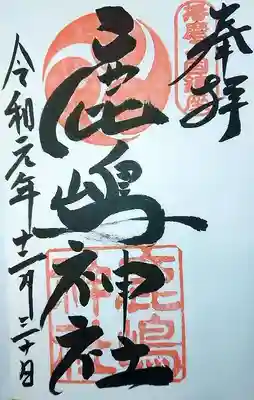 奉拝
鹿嶋神社
令和元年十二月三十日
鹿嶋
神社